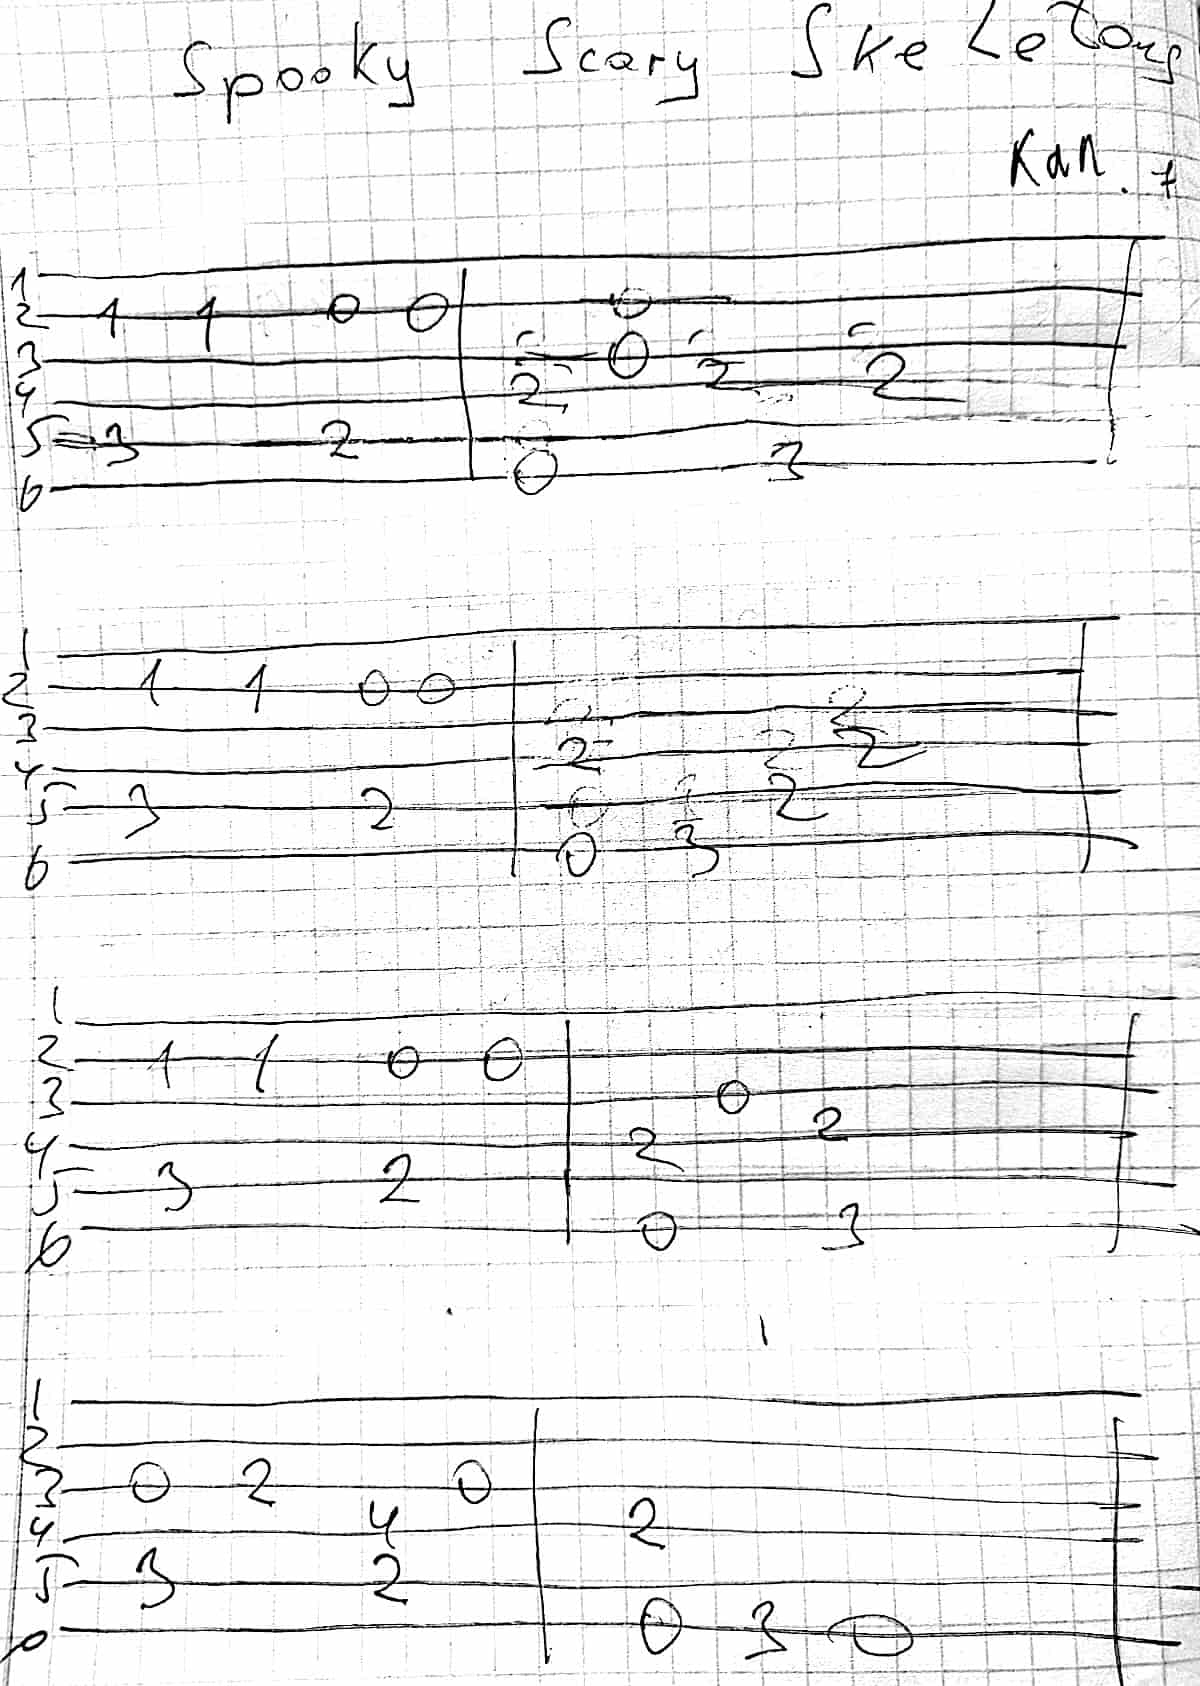 Spooky Scary Skeletons
Кап. 7
1
2 1 1 0 0 0
3 0
4 2 2 2
5 3 2
6 0 3
1
2 1 1 0 0
3
4 2 2
5 3 2 2
6 0 3
1
2 1 1 0 0
3 0
4 2 2
5 3 2
6 0 3
1
2
3 0 2 0
4 4 2
5 3 2
6 0 3 0